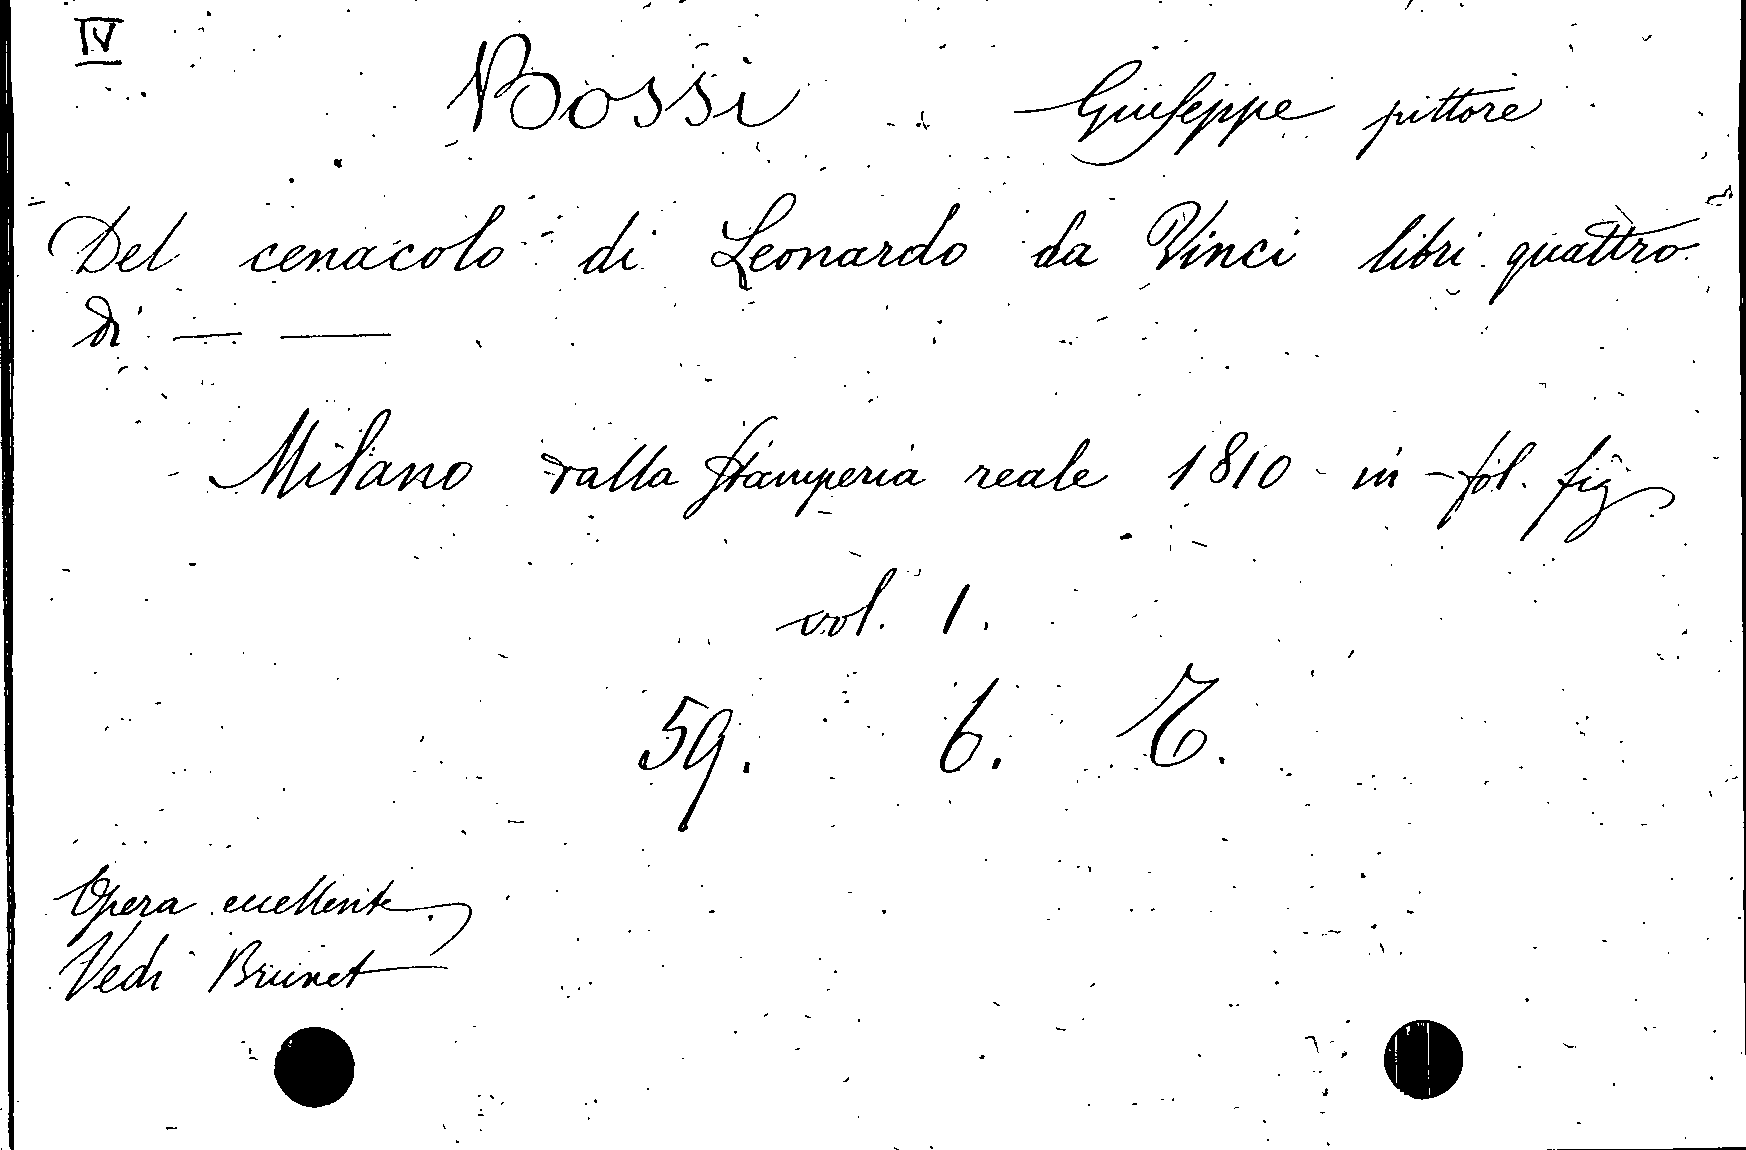 IV
Bossi Giuseppe pittore
Del cenacolo di Leonardo da Vinci libri quattro
di — —
Milano dalla Stamperia reale 1810 in-fol. fig.
vol. 1.
59. 6. 
Opera eccellente.
Vedi Brunet